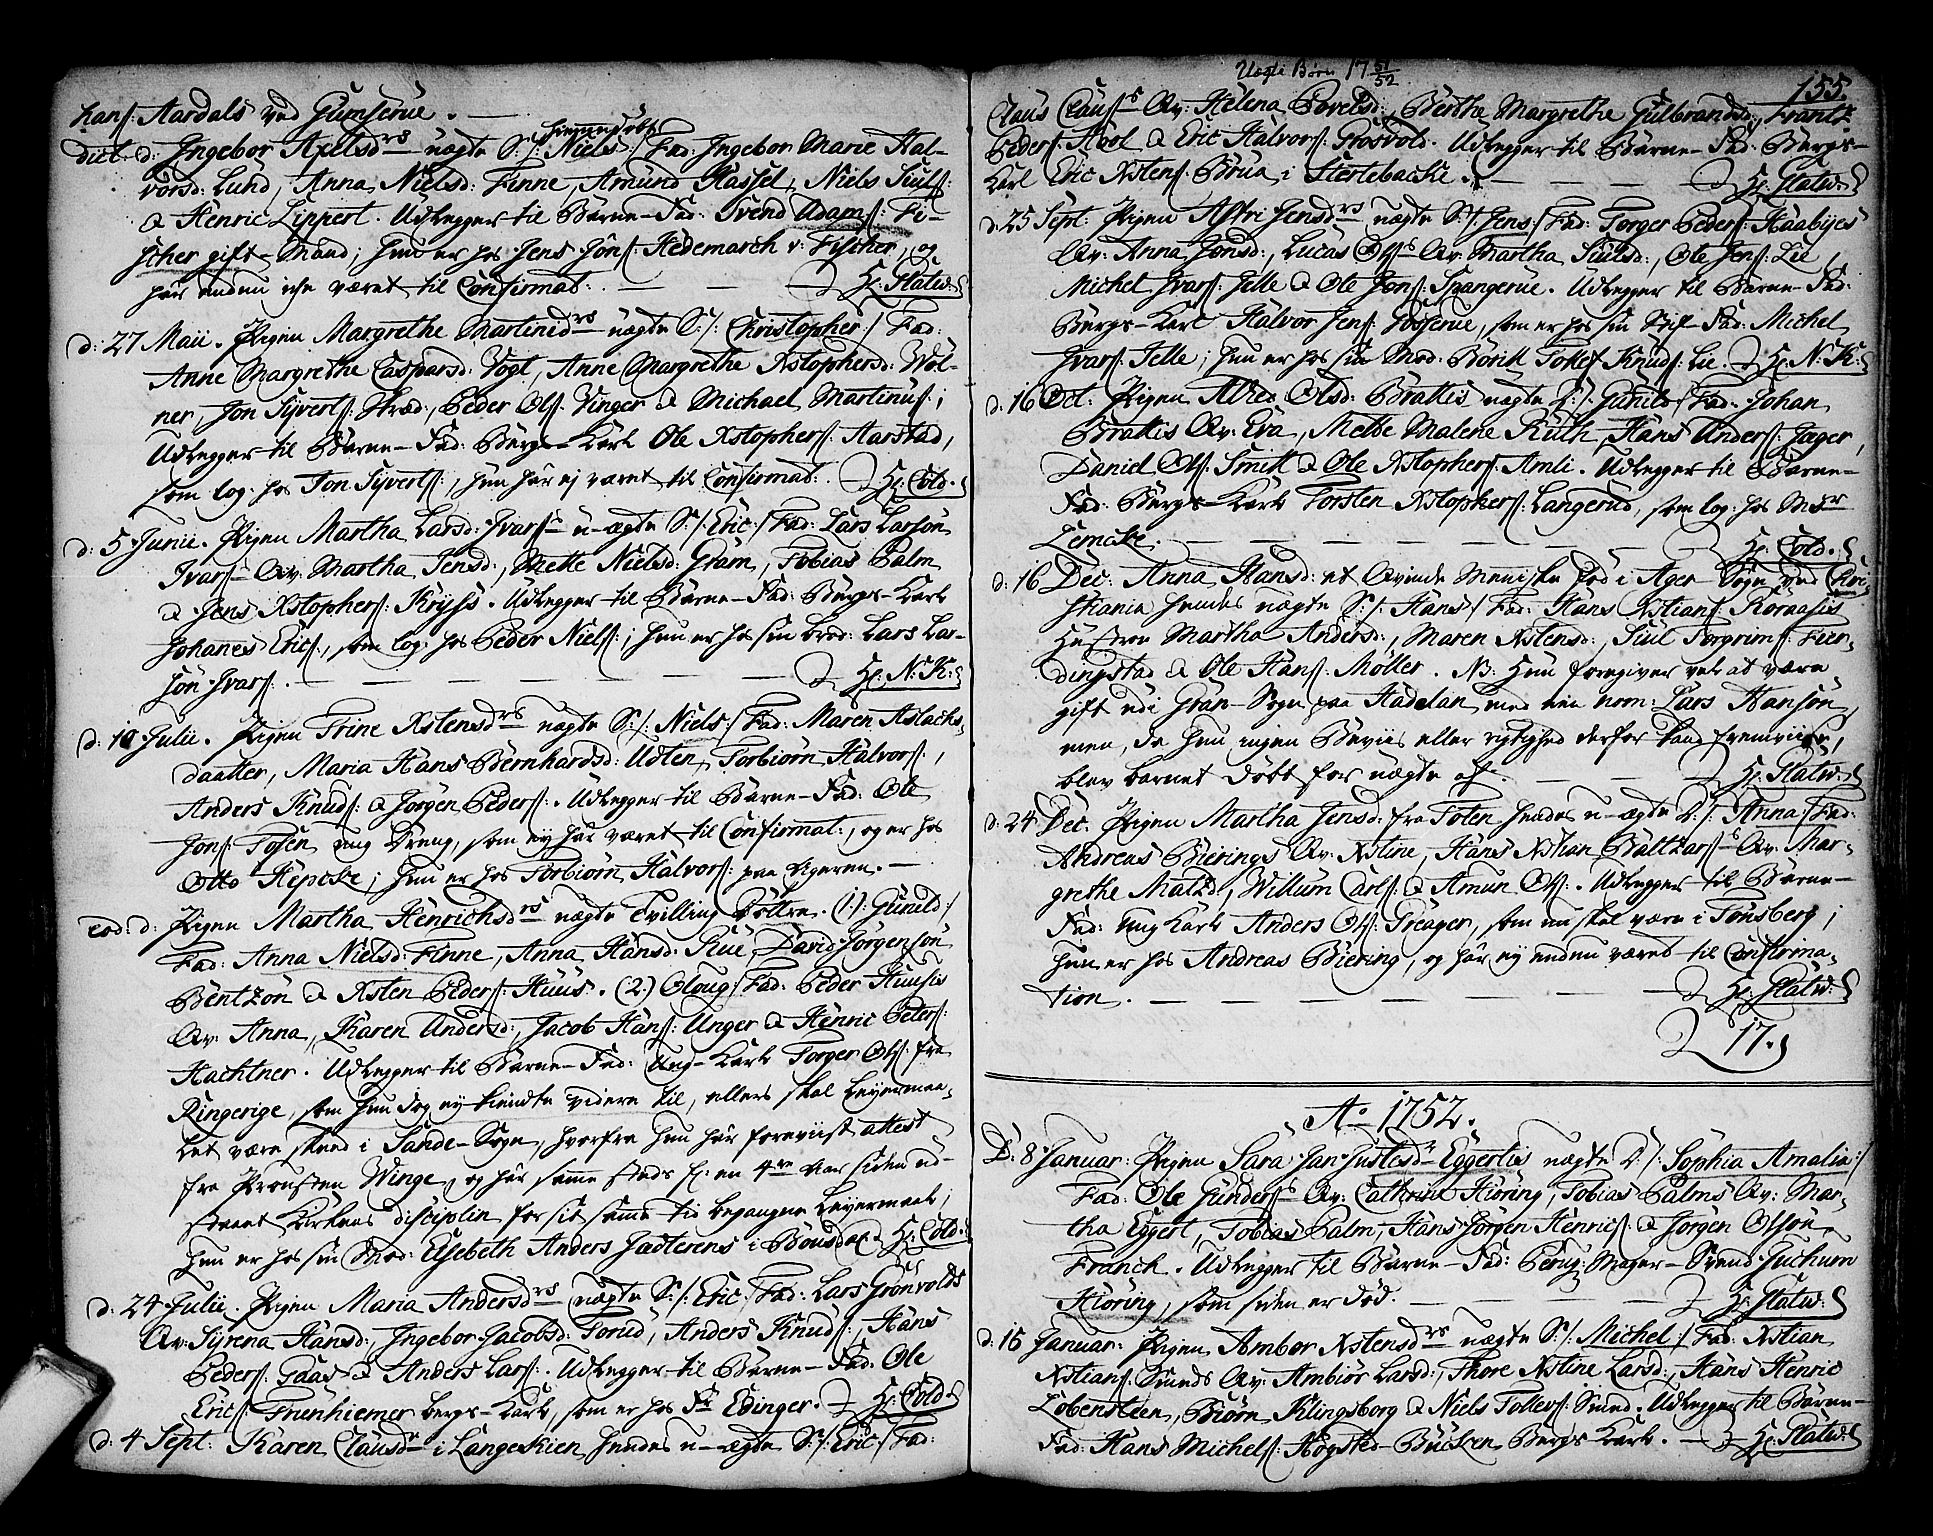 hans Aardals ved Gumserue.
dict. d: Ingebor Axelsdrs uægte S: /: Niels :/ Fad: Ingebor Marie Hal-
hiemmedøbt
vorsd: Lund, Anna Nielsd: Finne, Amund Hassel, Niels Juuls:
& Henric Lippert. Udlegger til Barne-Fad: Svend Adams: Fi-
scher gift-Mand; hun er hos Jens Jons: Hedemarch v: Fischer, og
har endnu iche været til Confirmat: Hr: Statw:
d: 27 Maii. Pigen Margrethe Martinidrs uægte S: /: Christopher :/ Fad:
Anne Margrethe Caspersd: Vogt, Anne Margrethe Xstophersd: Wol-
ner, Jon Syverts: Strød, Peder Ols: Vinger & Michael Martinus:;
Udlegger til Barne-Fad: Bergs-Karl Ole Xstophers: Aarstad,
som log: hos Jon Syverts:, hun har ej været til Confirmat: Hr: Cold.
d: 5 Junii. Pigen Martha Larsd: Ivars: u-ægte S: /: Eric :/ Fad: Lars Larson
Ivars: Qv: Martha Jensd:, Mette Nielsd: Gram, Tobias Palm
& Jens Xstophers: Kryss. Udlegger til Barne-Fad: Bergs-Karl
Johannes Erics:, som log: hos Peder Niels:; hun er hos sin brod: Lars Lar-
son Ivars: Hr: N: K:
d: 10 Julii. Pigen Trine Xstensdrs uægte S: /: Niels :/ Fad: Maren Aslachs-
daatter, Maria Hans Bernhardsd: Udten, Torbiørn Halvors:,
Anders Knuds: & Jørgen Peders: Udlegger til Barne-Fad: Ole
Jons: Fosen ung Dreng, som ey har været til Confirmat:, og er hos
Otto Hepcke; hun er hos Torbiørn Halvors: paa Ageren.
eod: d: Pigen Martha Henrichsdrs uægte Tvilling Døttre. (1.) /: Gunild :/
Fad: Anna Nielsd: Finne, Anna Hansd: Skue, David Jørgenson
Bentzon & Xsten Peders: Huus. (2.) Oloug :/ Fad: Peder Huusis
Qv: Anna, Karen Andersd:, Jacob Hans: Unger & Henric Peters:
Hachtner. Udlegger til Barne-Fad: Ung-Karl Torger Ols: fra
Ringerige, som hun dog ey kiendte videre til, ellers skal Leyermaa-
let være skeed i Sande-Sogn, hvorfra hun har foreviist attest
fra Provsten Winge, og har samme steds for en 4re Aar siden ud-
staaet Kirkens disciplin for sit samme tid begangne Leyermaal;
hun er hos sin Mod: Elsebeth Anders Jæterens i Bousdal. Hr: Cold.
d: 24 Julii. Pigen Maria Andersdrs uægte S: /: Eric :/ Fad: Lars Grønvolds
Qv: Syrena Hansd:, Ingebor Jacobsd: Torud, Anders Knuds:, Hans
Peders: Gaas & Anders Lars: Udlegger til Barne-Fad: Ole
Erics: Fruenhiemer bergs-Karl, som er hos Fr Edinger. Hr: Cold
d: 4 Sept: Karen Clausdr i Langeskien hendes u-ægte S: /: Eric :/ Fad:
Uegte Børn 17 51/52
155.
Claus Clauss: Qv: Helena Povelsd:, Berthe Margrethe Gulbrandsd:, Frantz
Peders: Hvol & Eric Halvors: Grosvold. Udlegger til Barne-Fad: Bergs-
Karl Eric Xstens: Brua i Stertebacke. Hr: Statw:
d: 25 Sept: Pigen Astri Jensdrs uægte S: /: Jens :/ Fad: Torger Peders: Haabyes
Qv: Anna Jonsd:, Lucas Ols: Qv: Martha Juulsd:, Ole Jens: Lie,
Michel Ivars: Jelle & Ole Jons: Spangerue. Udlegger til Barne-Fad:
Bergs-Karl Halvor Jens: Gosserue, som er hos sin Stif-Fad: Michel
Ivars: Jelle; hun er hos sin Mod: Borill Tollef Knuds: Lie. Hr: N: K:
d: 16 Oct: Pigen Alhed Olsd: Brattis uægte D: /: Gunild :/ Fad: Johan
Brattis Qv: Eva, Mette Malene Ruth, Hans Anders: Jæger,
Daniel Ols: Smitt & Ole Xstophers: Amli. Udlegger til Barne-
Fad: Bergs-Karl Torsten Xstophers: Langerud, som log: hos Mr
Lemcke. Hr: Cold.
d: 16 Dec: Anna Hansd: et Qvinde Menniske fød i Ager Sogn ved Chri-
stiania hendes uægte S: /: Hans :/ Fad: Hans Xstians: Koraasis
Hustroe Martha Andersd:, Maren Xstensd:, Juul Torgrims: Fier-
dingstad & Ole Hans: Møller. NB: Hun foregiver vel at være
gift udi Gran-Sogn paa Hadelan med een nom: Lars Hanson,
men, da hun ingen Beviis eller rigtighed derfor kand fremviise,
blev barnet døbt for uægte af Hr: Statw:
d: 24 Dec: Pigen Martha Jensd: fra Toten hendes u-ægte D: /: Anna :/ Fad:
Andreas Bierings Qv: Xstine, Hans Xstian Baltzars: Qv: Mar-
grethe Matzd:, Willum Carls: & Amun Ols: Udlegger til Barne-
Fad: Ung Karl Anders Ols: Treager, som nu skal være i Tønsberg;
hun er hos Andreas Biering, og har ey endnu været til Confirma-
tion. Hr: Statw:
17.
Ao 1752.
D: 8 Januar: Pigen Sara Jan-Justesdr Eggertis uægte D: /: Sophia Amalia :/
Fad: Ole Gunders: Qv: Cathrine Hioring, Tobias Palms Qv: Mar-
tha Eggert, Tobias Palm, Hans Jørgen Henrics: & Jørgen Olsson
Franck. Udlegger til Barne-Fad: Peruq-Mager-Svend Juchum
Hioring, som siden er død. Hr: Statw:
d: 15 Januar: Pigen Ambor Xstensdrs uægte S: /: Michel :/ Fad: Xstian
Xstians: Smeds Qv: Ambiør Larsd:, Thore Xstine Larsd:, Hans Henric
Lobensteen, Biørn Klingsborg & Niels Tollefs: Smed. Udlegger til Barne-
Fad: Hans Michels: Hogsted-Backen Bergs-Karl. Hr: Statw: